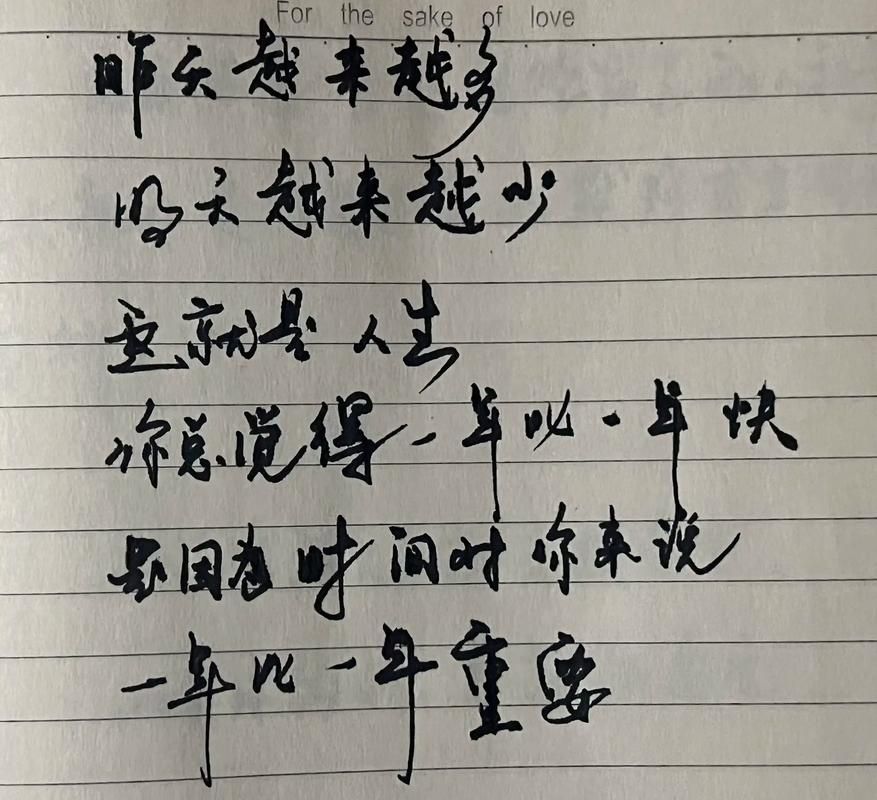 For the sake of love
昨天越来越多
明天越来越少
这就是人生
你总觉得一年比一年快
是因为时间对你来说
一年比一年重要